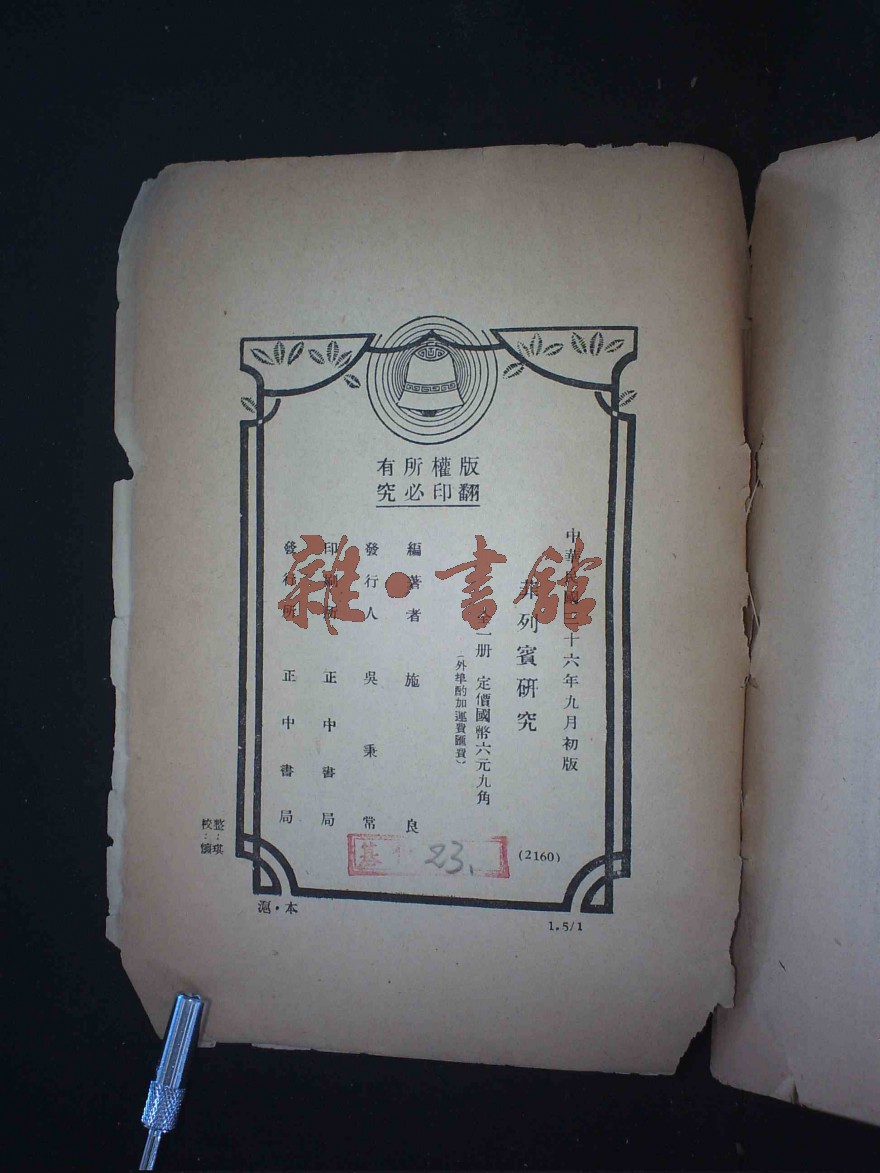 版權所有
翻印必究
中華民國三十六年九月初版
菲列賓研究
全一册 定價國幣六元九角
(外埠酌加運費匯費)
編著者 施良
發行人 吳秉常
印刷所 正中書局
發行所 正中書局
(2160)
23.
整：琪
校：
滬・本
1.5/1
雜・書館